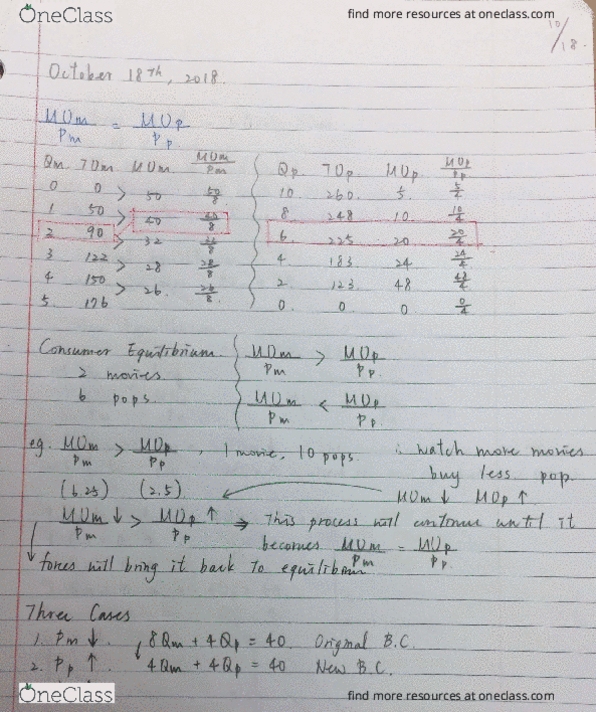 OneClass
find more resources at oneclass.com
10/18.
October 18th, 2018.
MUm/Pm = MUp/Pp
Qm TUm MUm MUm/Pm Qp TUp MUp MUp/Pp
0 0 > 50 50/8 10 260. 5. 5/4
1 50 > 40 40/8 8 248 10 10/4
2 90 > 32 32/8 6. 225 20 20/4
3 122 > 28 28/8 4 183 24 24/4
4 150 > 26. 26/8 2. 123 48 48/4
5. 176 0. 0 0 0/4
Consumer Equilibrium. MUm/Pm > MUp/Pp.
2 movies.
6 pops. MUm/Pm < MUp/Pp.
eg. MUm/Pm > MUp/Pp, 1 movie, 10 pops. watch more movies
buy less pop.
(6.25) (2.5) MUm ↓ MUp ↑
MUm/Pm ↓ > MUp/Pp ↑ ⇒ This process will continue until it
becomes MUm/Pm = MUp/Pp.
forces will bring it back to
Three Cases
1. Pm ↓. 8Qm + 4Qp = 40. Original B.C.
2. Pp ↑ 4Qm + 4Qp = 40 New B.C.
OneClass
find more resources at oneclass.com